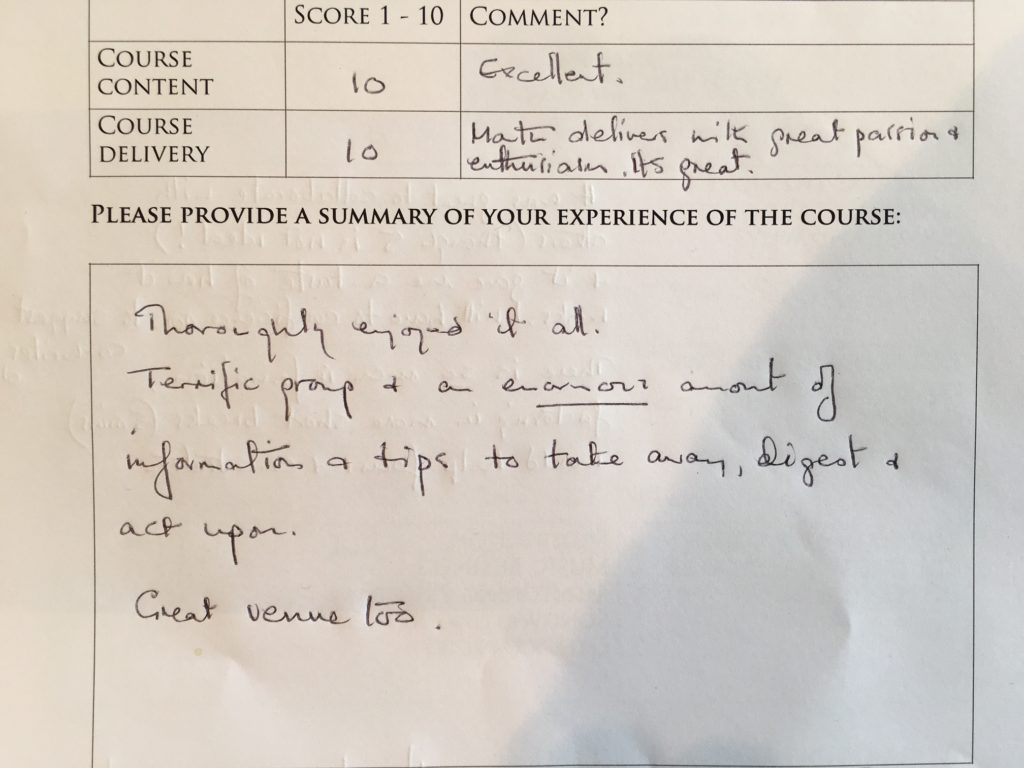 SCORE 1 - 10 COMMENT?
COURSE CONTENT 10 Excellent.
COURSE DELIVERY 10 delivers with great passion &
enthusiasm. Its great.
PLEASE PROVIDE A SUMMARY OF YOUR EXPERIENCE OF THE COURSE:
Thoroughly enjoyed it all.
Terrific group & an enormous amount of
information & tips to take away, digest &
act upon.
Great venue too.